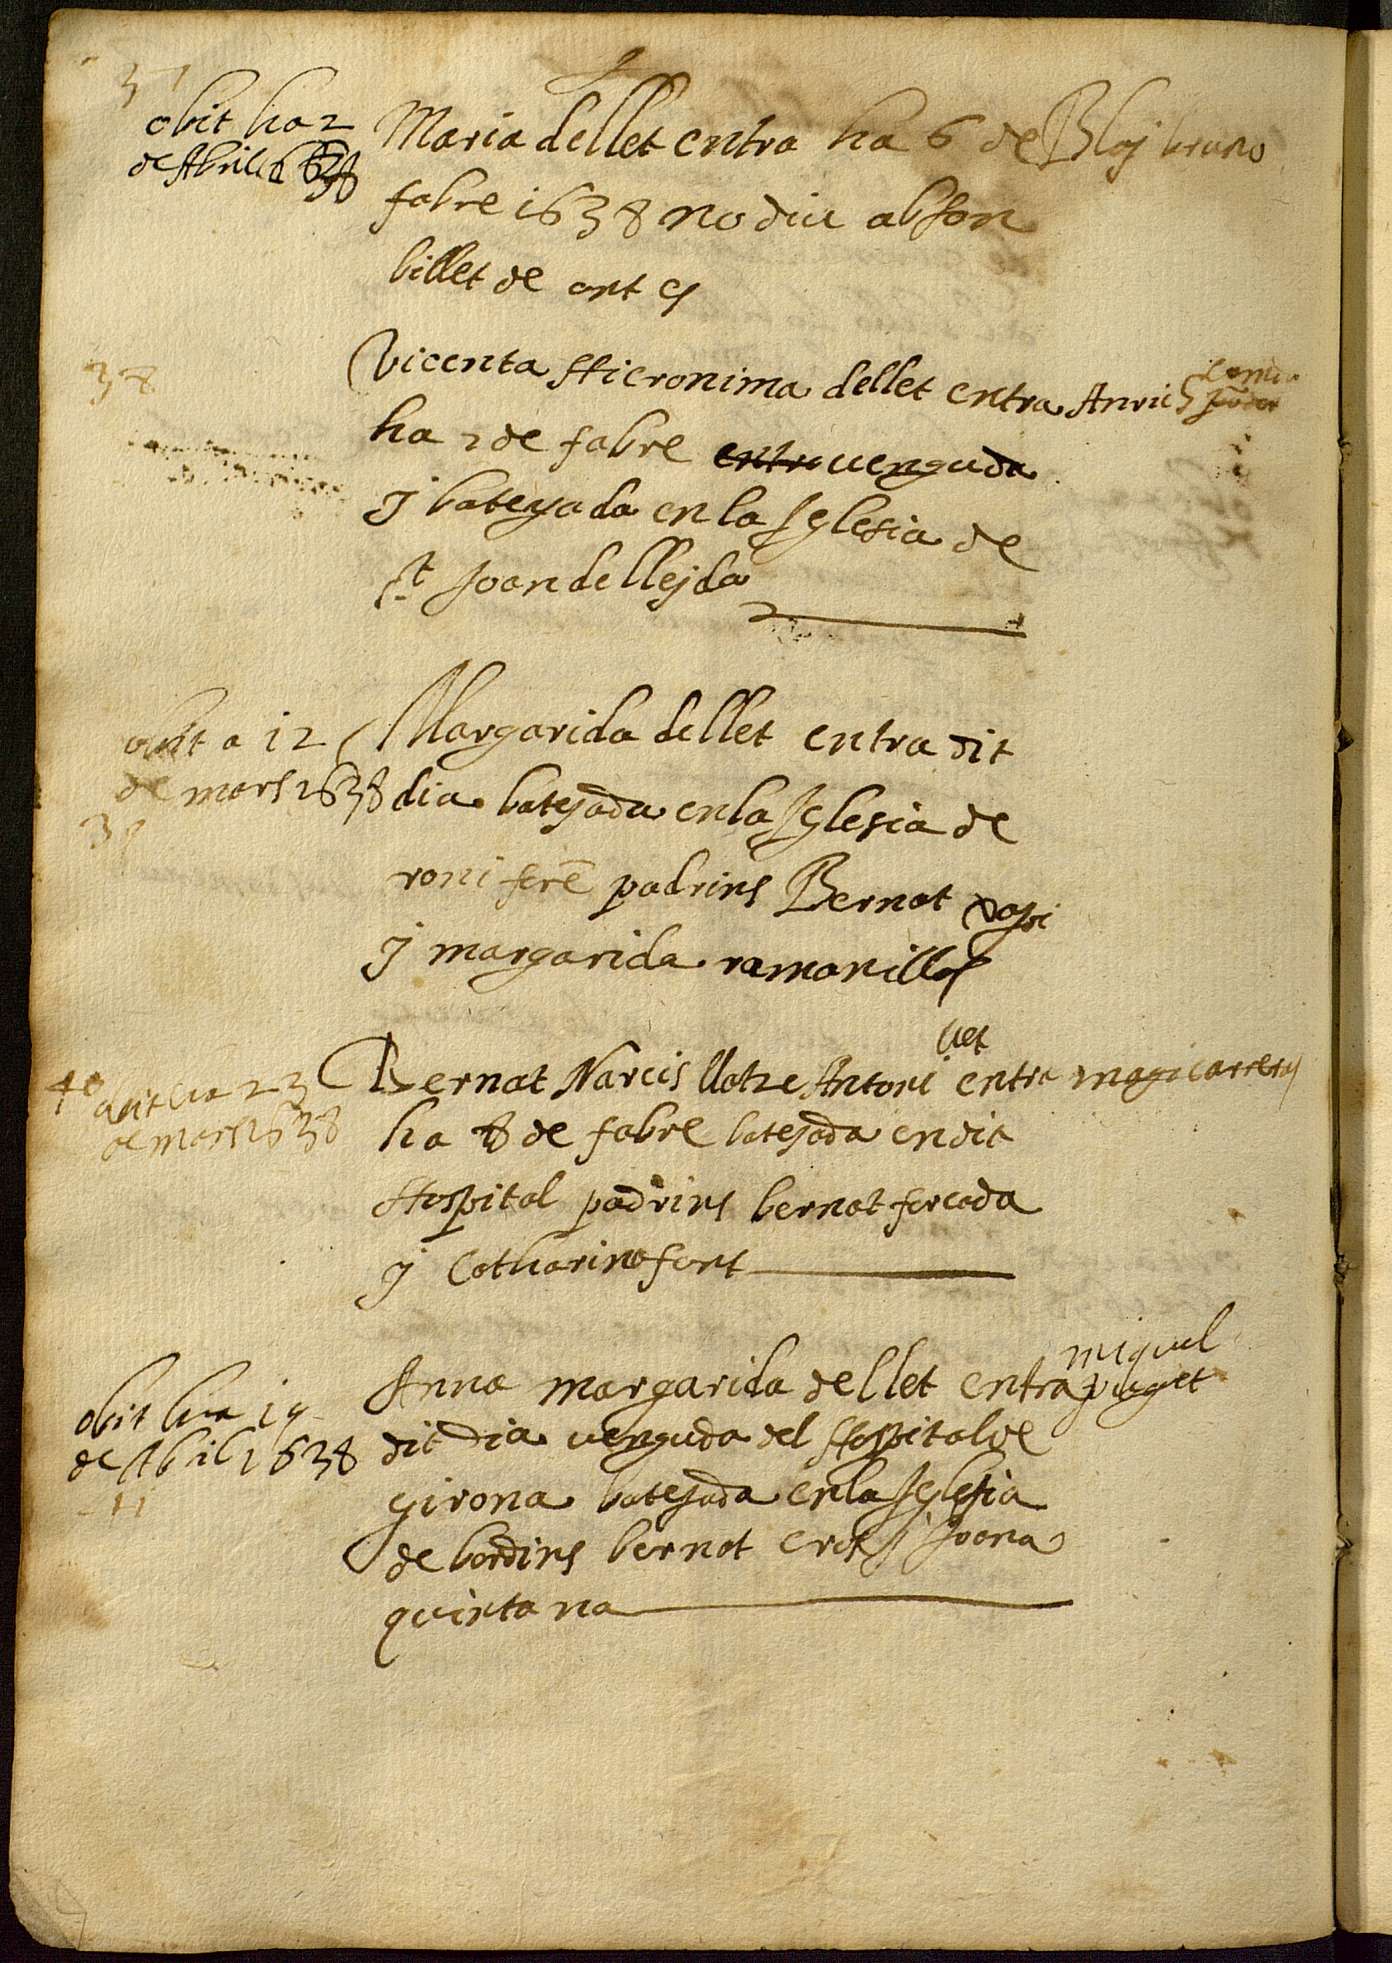 37
obit ha 2
de Abril 1638
Maria de llet entra ha 6 de Bloj bruno
fabre 1638 no diu ab son
billet de ont es
38
Vicenta Hieronima de llet entra Anric
ha 2 de fabre entra venguda
j bateyada en la Iglesia de
st Joan de llejda
obit a 12
de mars 1638
39
Margarida de llet entra dit
dia batejada en la Iglesia de
roni foré padrins Bernat
j margarida ramonilla
40 obit ha 23
de mars 1638
llet
Bernat Narcis llatze Antoni entra magi carreras
ha 8 de fabre batejada en dit
Hospital padrins bernat forcada
j Catharina font
obit ha 19
de Abril 1638
miquel
Anna margarida de llet entra puget
dit dia venguda del Hospital de
girona batejada en la Iglesia
de bordins bernat j Joana
quintana